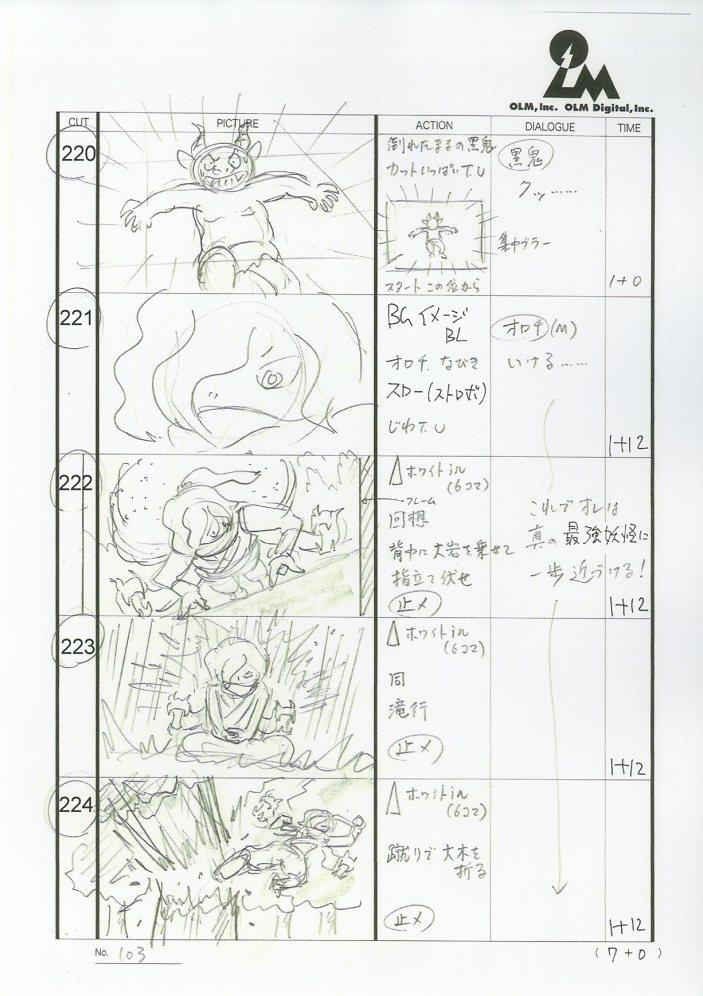 OLM, Inc. OLM Digital, Inc.
CUT PICTURE ACTION DIALOGUE TIME
220
倒れたままの黒鬼
カットいっぱいT.U
スタートこの位から
黒鬼
クッ……
集中ブラー
1+0
221
BG イメージ
BL
オロチ、なびき
スロー(ストロボ)
じわT.U
オロチ(M)
いける……
1+12
222
ホワイトin
(6コマ)
フレーム
回想
背中に大岩を乗せて
指立て伏せ
止メ
これでオレは
真の最強妖怪に
一歩近づける!
1+12
223
ホワイトin
(6コマ)
同
滝行
止メ
1+12
224
ホワイトin
(6コマ)
蹴りで大木を
折る
止メ
1+12
No. 103
(7+0)